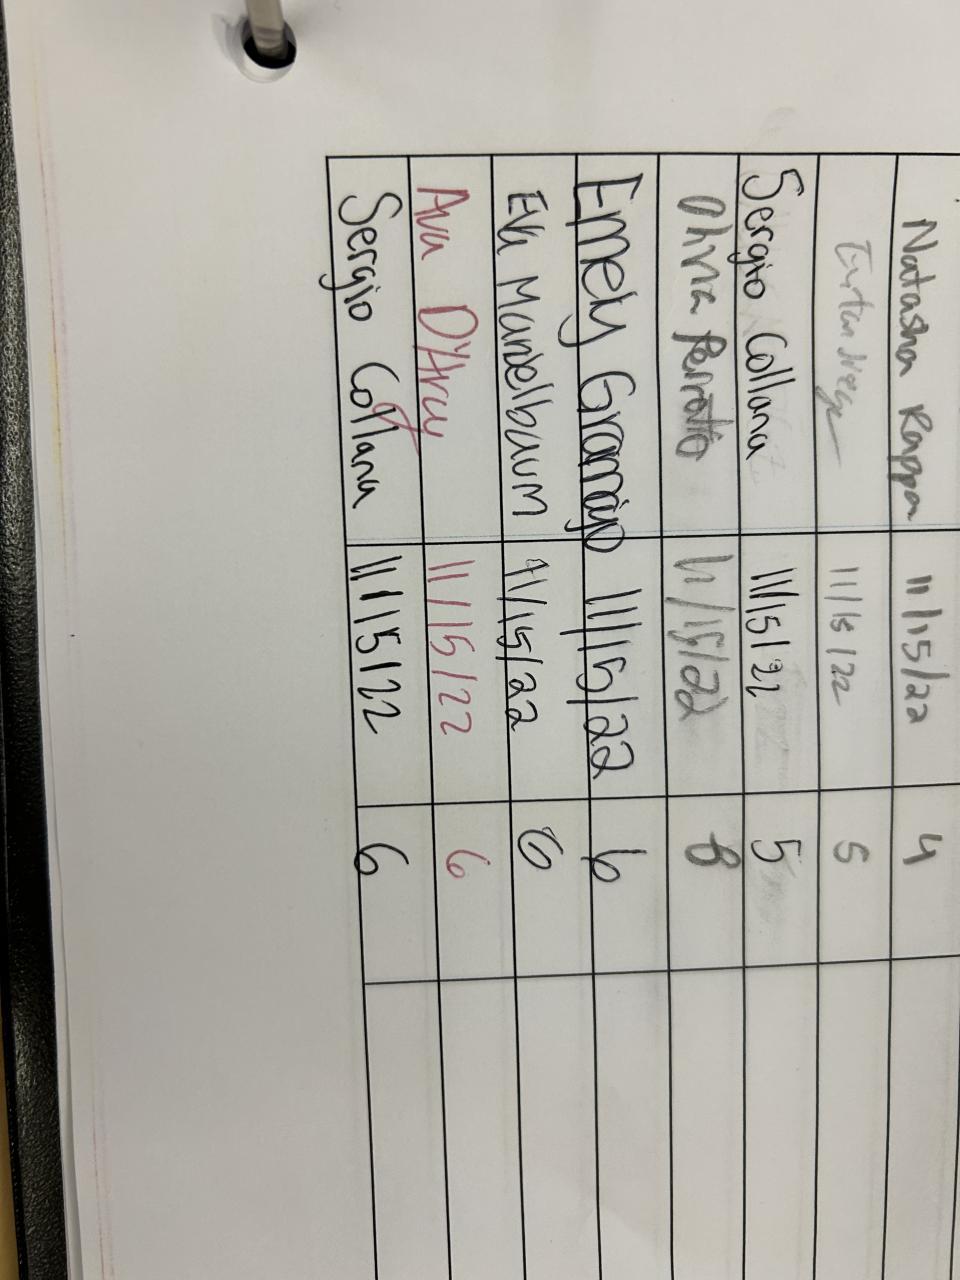 Natasha Rappa 11/15/22 4
11/15/22 5
Sergio Collana 11/15/22 5
11/15/22 8
Emely 11/15/22 6
Eva Mandelbaum 11/15/22 6
Ava 11/15/22 6
Sergio Collana 11/15/22 6